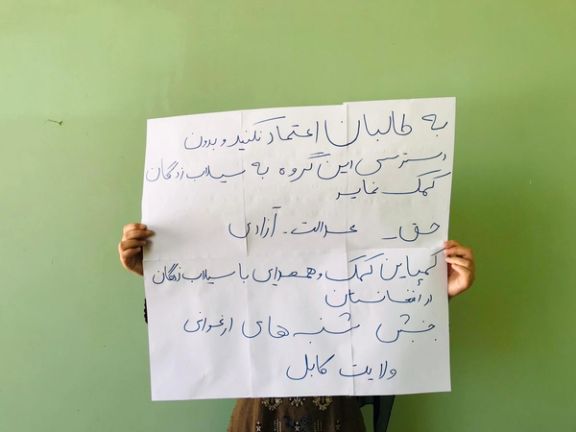 به طالبان اعتماد نکنید و بدون
دسترسی این گروه به سیلاب زدگان
کمک نماید
حق _ عدالت - آزادی
کمپاین کمک و همصدایی با سیلاب زدگان
در افغانستان
جنبش شنبه های ارغوانی
ولایت کابل